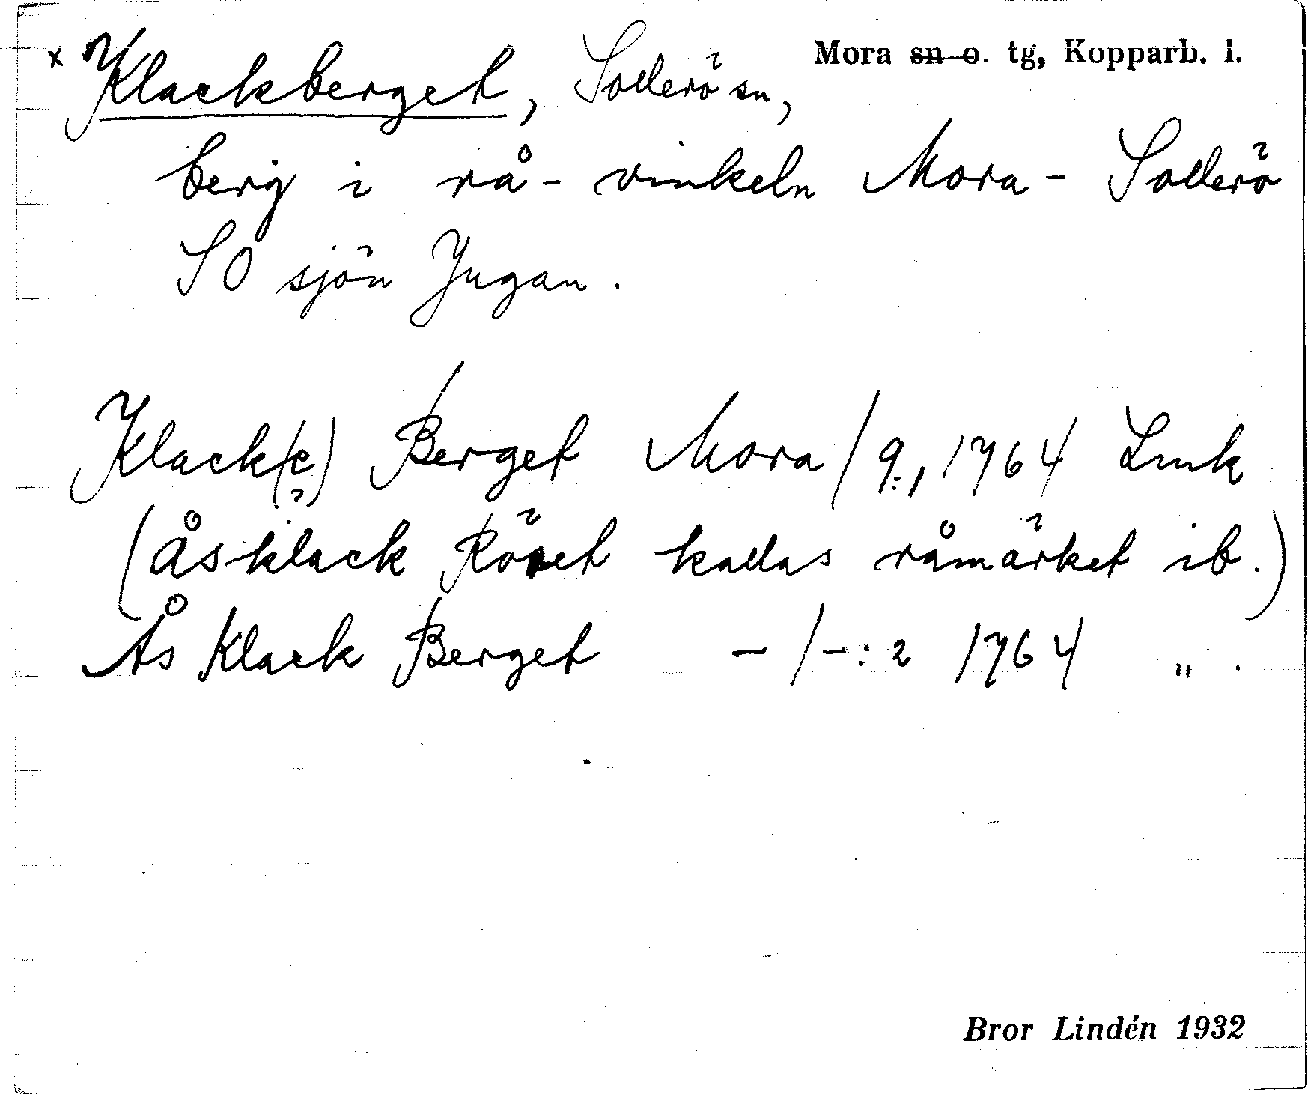 x Klackberget, Sollerö sn, Mora sn o. tg, Kopparb. l.
berg i rå-vinkeln Mora - Sollerö
SO sjön Jugan.
Klack(e?) Berget Mora / 9:, 1764 Lmk
(Åsklack Röset kallas råmärket ib.)
Ås Klack Berget - / - : 2 1764 ".
Bror Lindén 1932